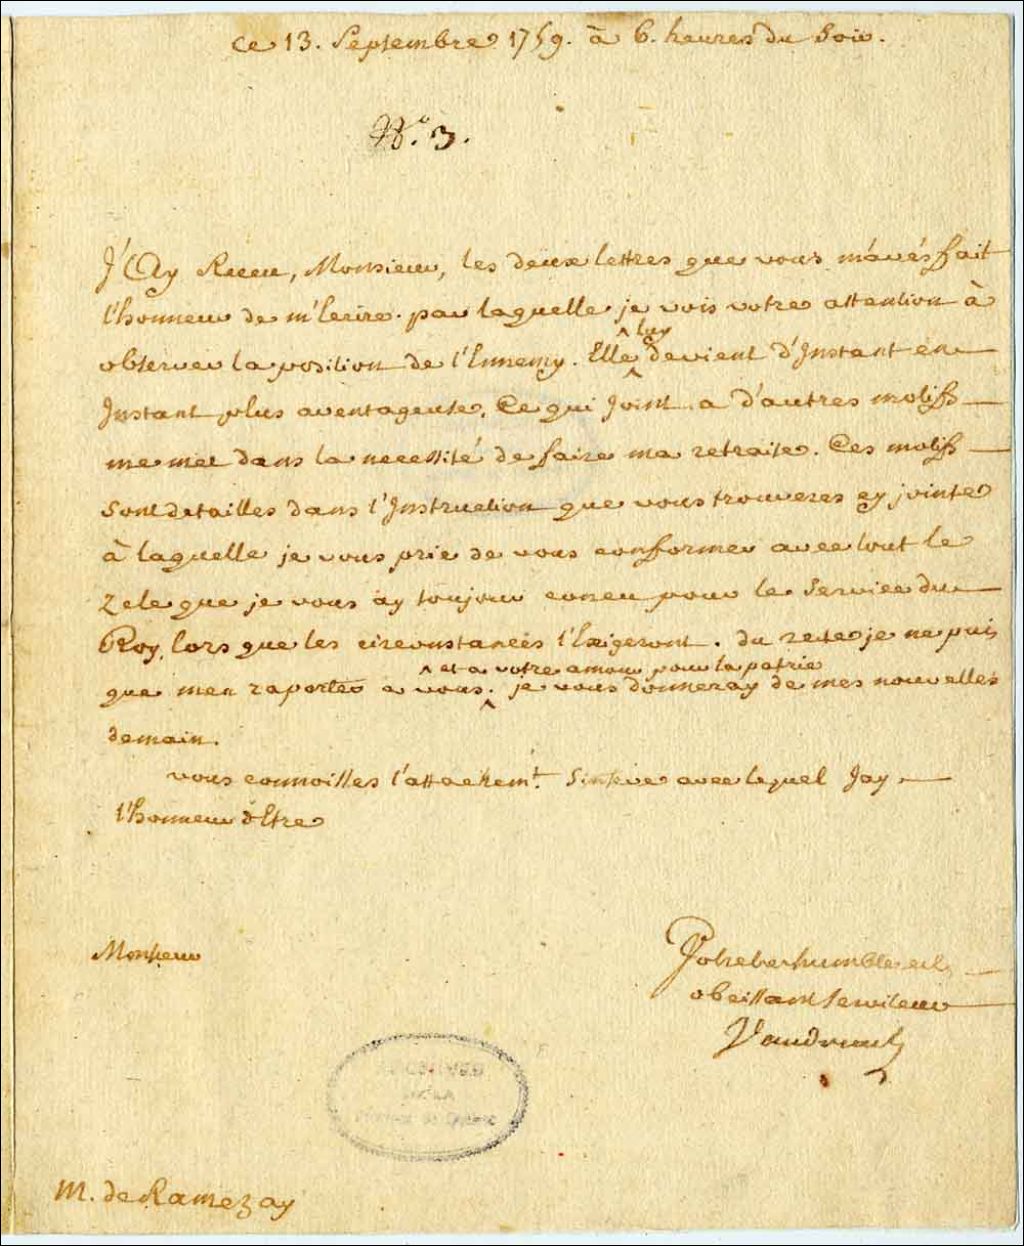 ce 13. Septembre 1759. à 6. heures du Soir.
N.° 3.
J'Ay Receu, Monsieur, les deux lettres que vous m'avés fait
l'honneur de m'Ecrire. par laquelle je vois votre attention à
observer la position de l'Ennemy. Elle luy devient d'Instant en
Instant plus aventageuse, Ce qui Joint a d'autres motifs
me met dans la necessité de faire ma retraite. Ces motifs
sont detailles dans l'Instruction que vous trouveres cy jointe
à laquelle je vous prie de vous conformer avec tout le
zele que je vous ay toujour coneu pour le Service du
Roy, lors que les circonstances l'Exigeront. du reste je ne puis
que men raporter a vous. et a votre amour pour la patrie je vous donneray de mes nouvelles
demain.
vous connoisses l'attachemt. Sincere avec lequel Jay
l'honneur d'Etre
Monsieur
Votre tres humble et
obeissant serviteur
Vaudreuil
M. de Ramezay